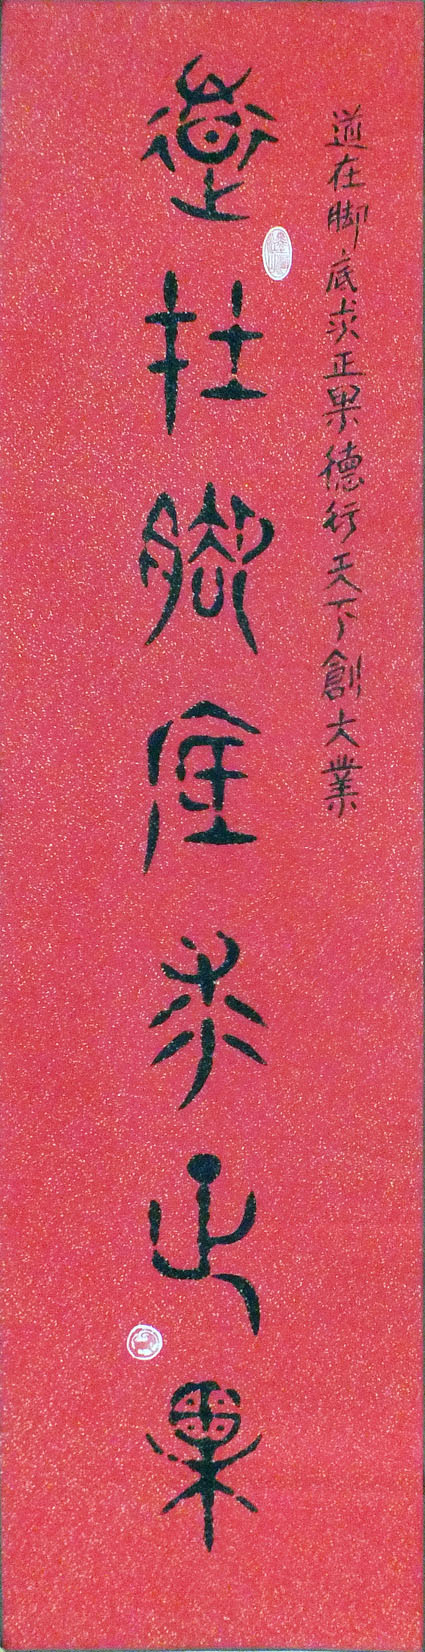 道在脚底求正果德行天下創大業
道在脚底求正果